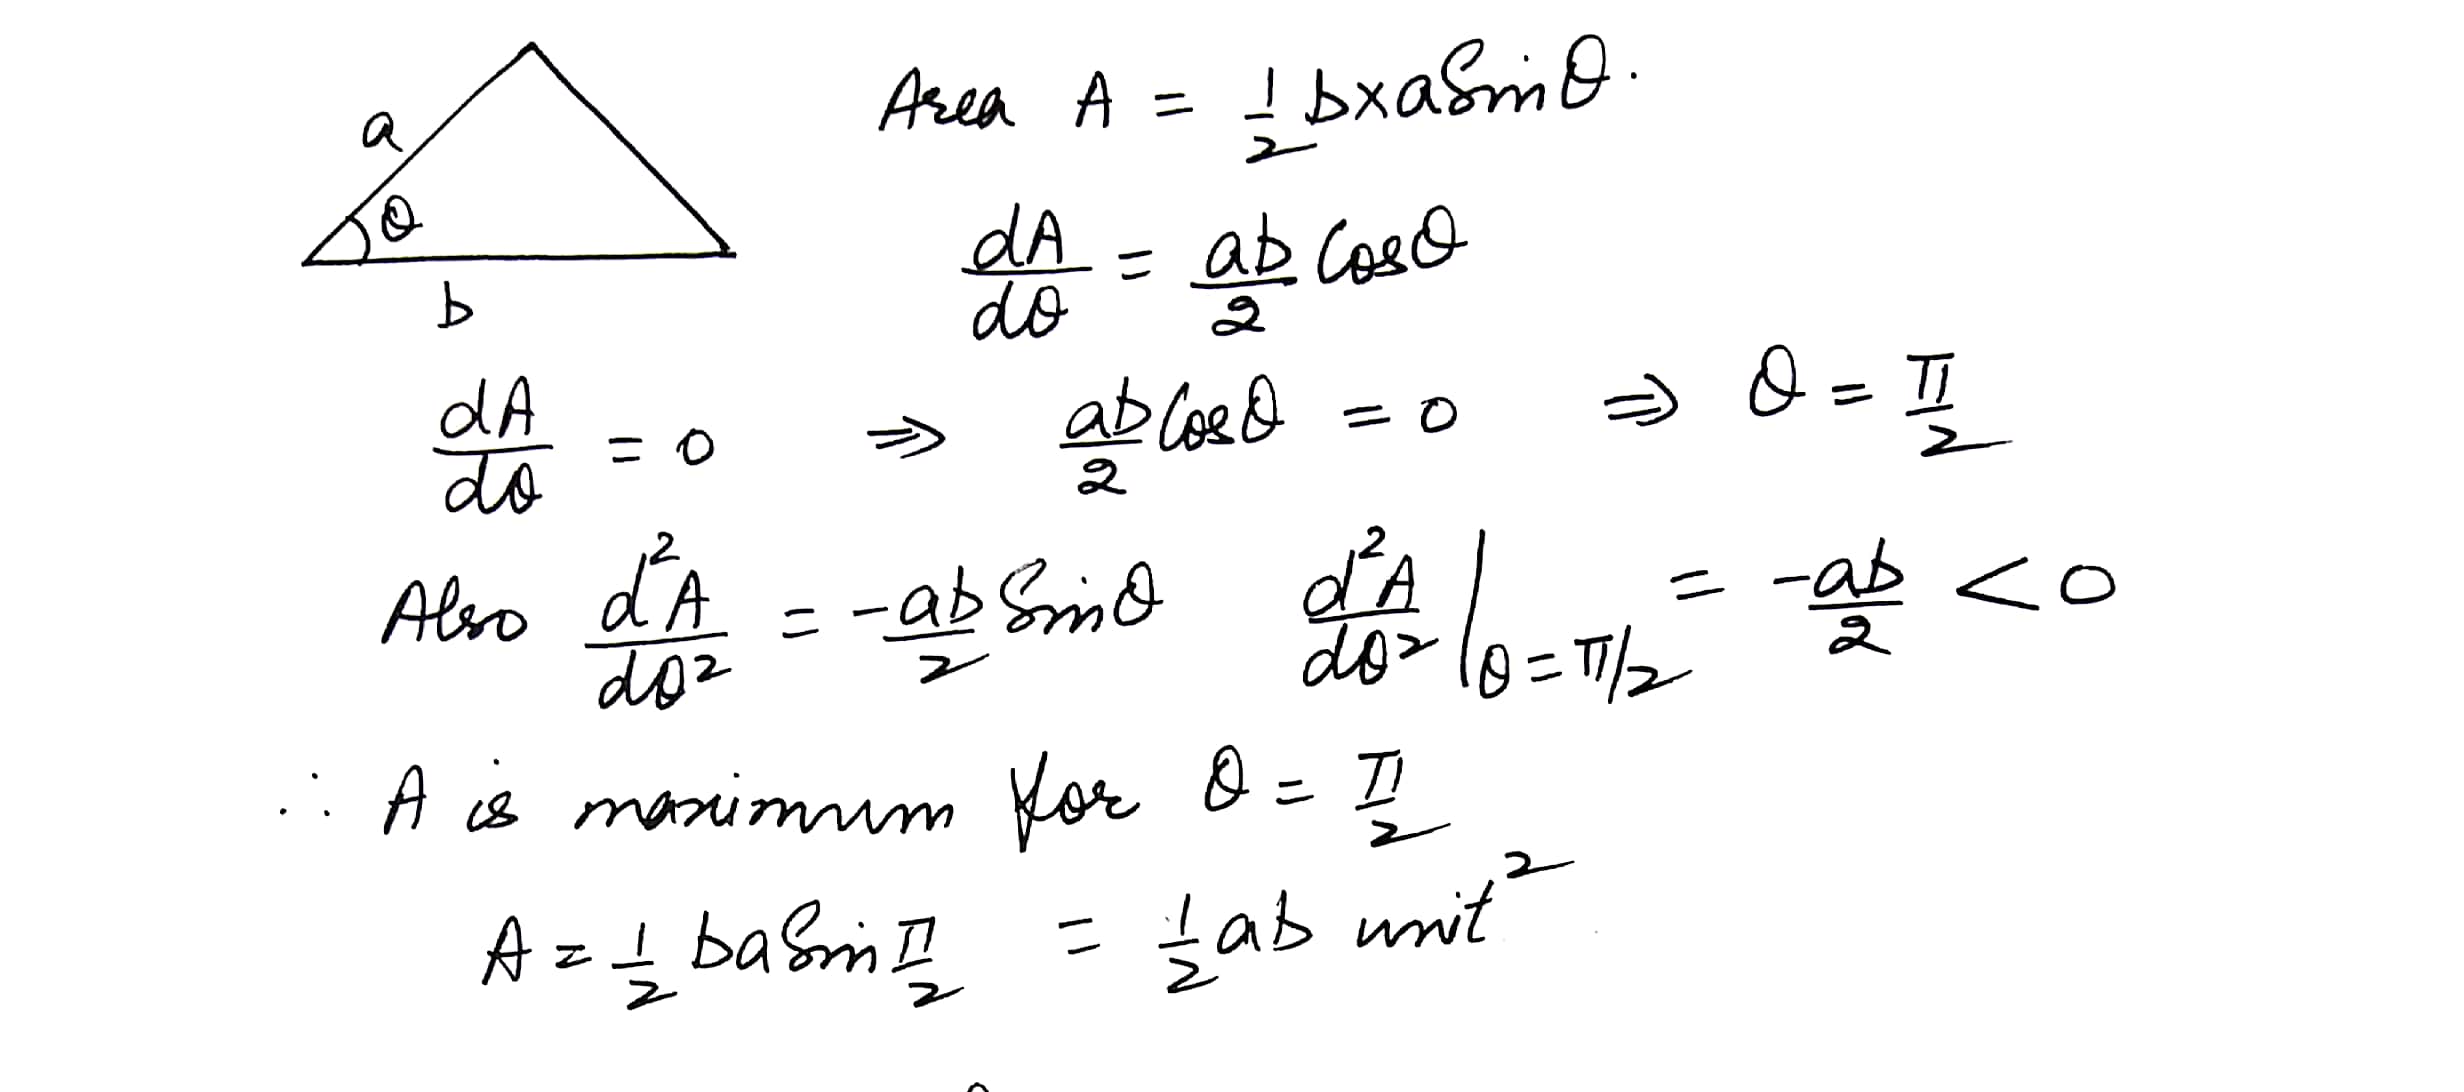 a
θ
b
Area A = 1/2 b×a Sinθ.
dA/dθ = ab/2 Cosθ
dA/dθ = 0 ⇒ ab/2 Cosθ = 0 ⇒ θ = π/2
Also d²A/dθ² = -ab/2 Sinθ d²A/dθ² |θ=π/2 = -ab/2 < 0
∴ A is maximum for θ = π/2
A = 1/2 ba Sin π/2 = 1/2 ab unit²